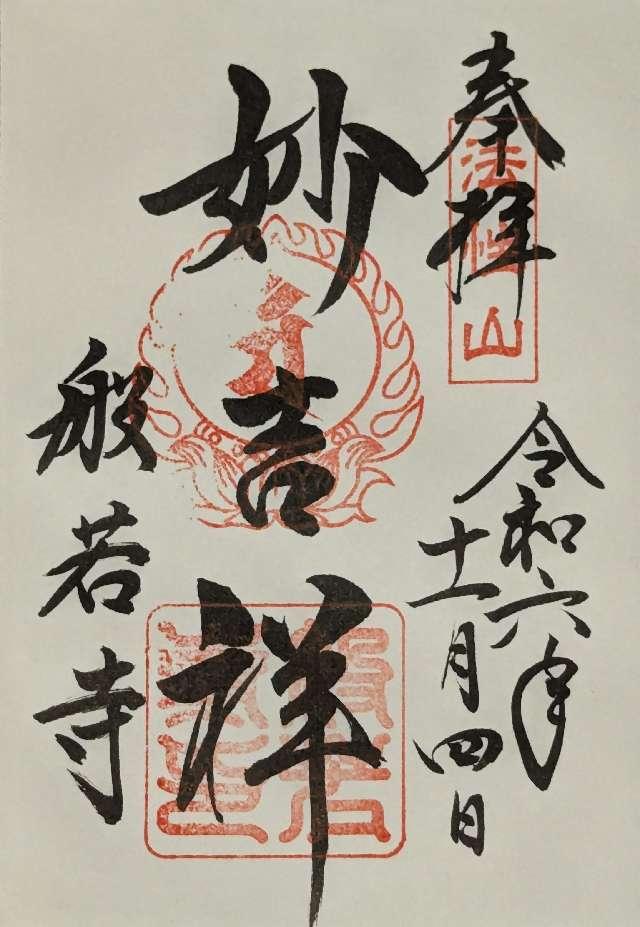 奉拝
法性山
令和六年
十一月四日
妙吉祥
般若寺